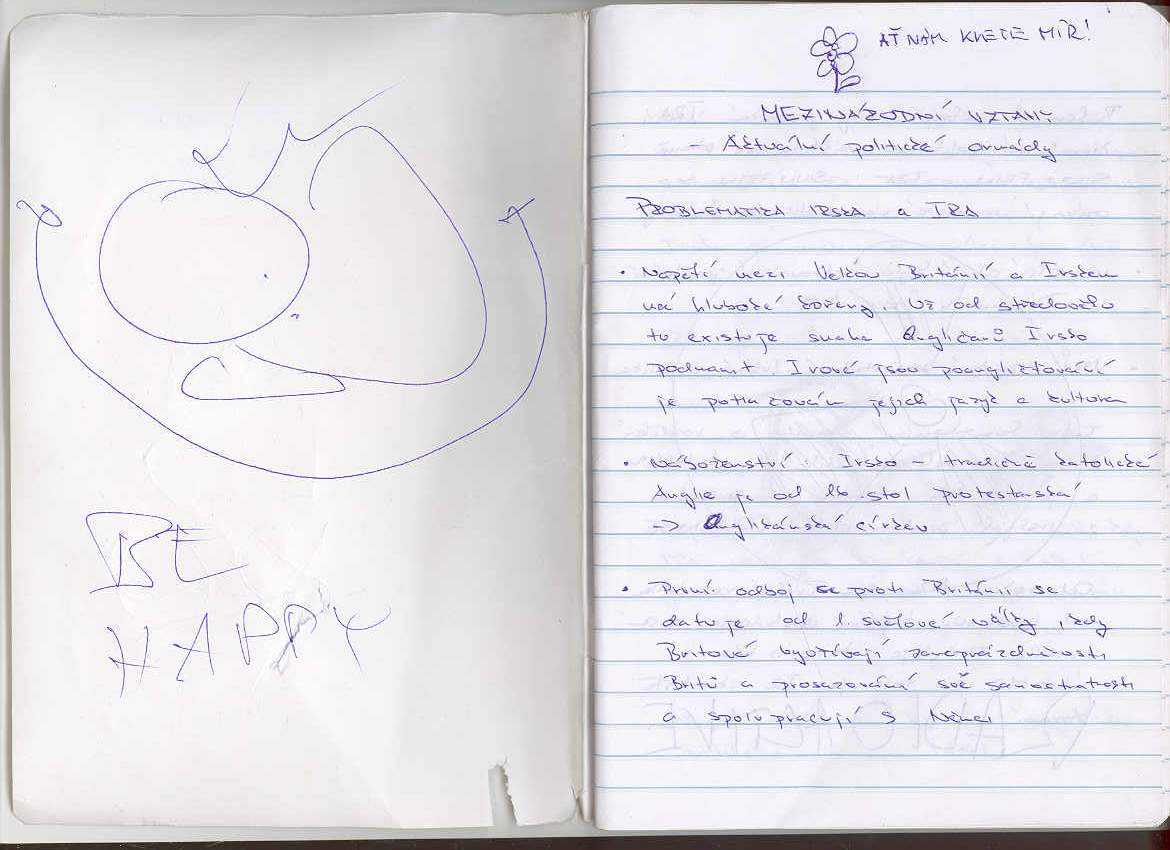 BE
HAPPY
AŤ NÁM KVETE MÍR!
MEZINÁRODNÍ VZTAHY
- Aktuální politické
PROBLEMATIKA IRSKA a IRA
• Napětí mezi Velkou Británií a Irskem
má hluboké kořeny. Už od středověku
tu existuje snaha Angličanů Irsko
podmanit. Irové jsou poangličťování
je potlačován jejich jazyk a kultura
• Náboženství: Irsko - tradičně katolické
Anglie je od 16. stol protestanská
-> Anglikánská církev
• První odboj se proti Británii se
datuje od 1. světové války, kdy
Britové využívají zaneprázdněnosti
Britů a prosazování své samostatnosti
a spolupracují s Němci